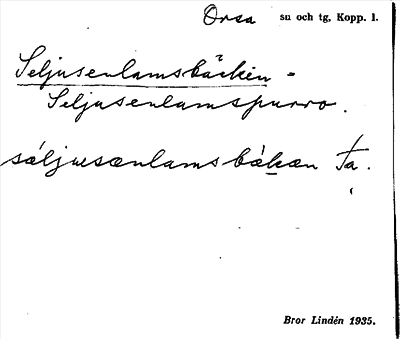 Orsa su och tg, Kopp. l.
Seljusenlamsbäcken =
Seljusenlamspurro.
säljusænlamsbäkæn Ta.
Bror Lindén 1935.